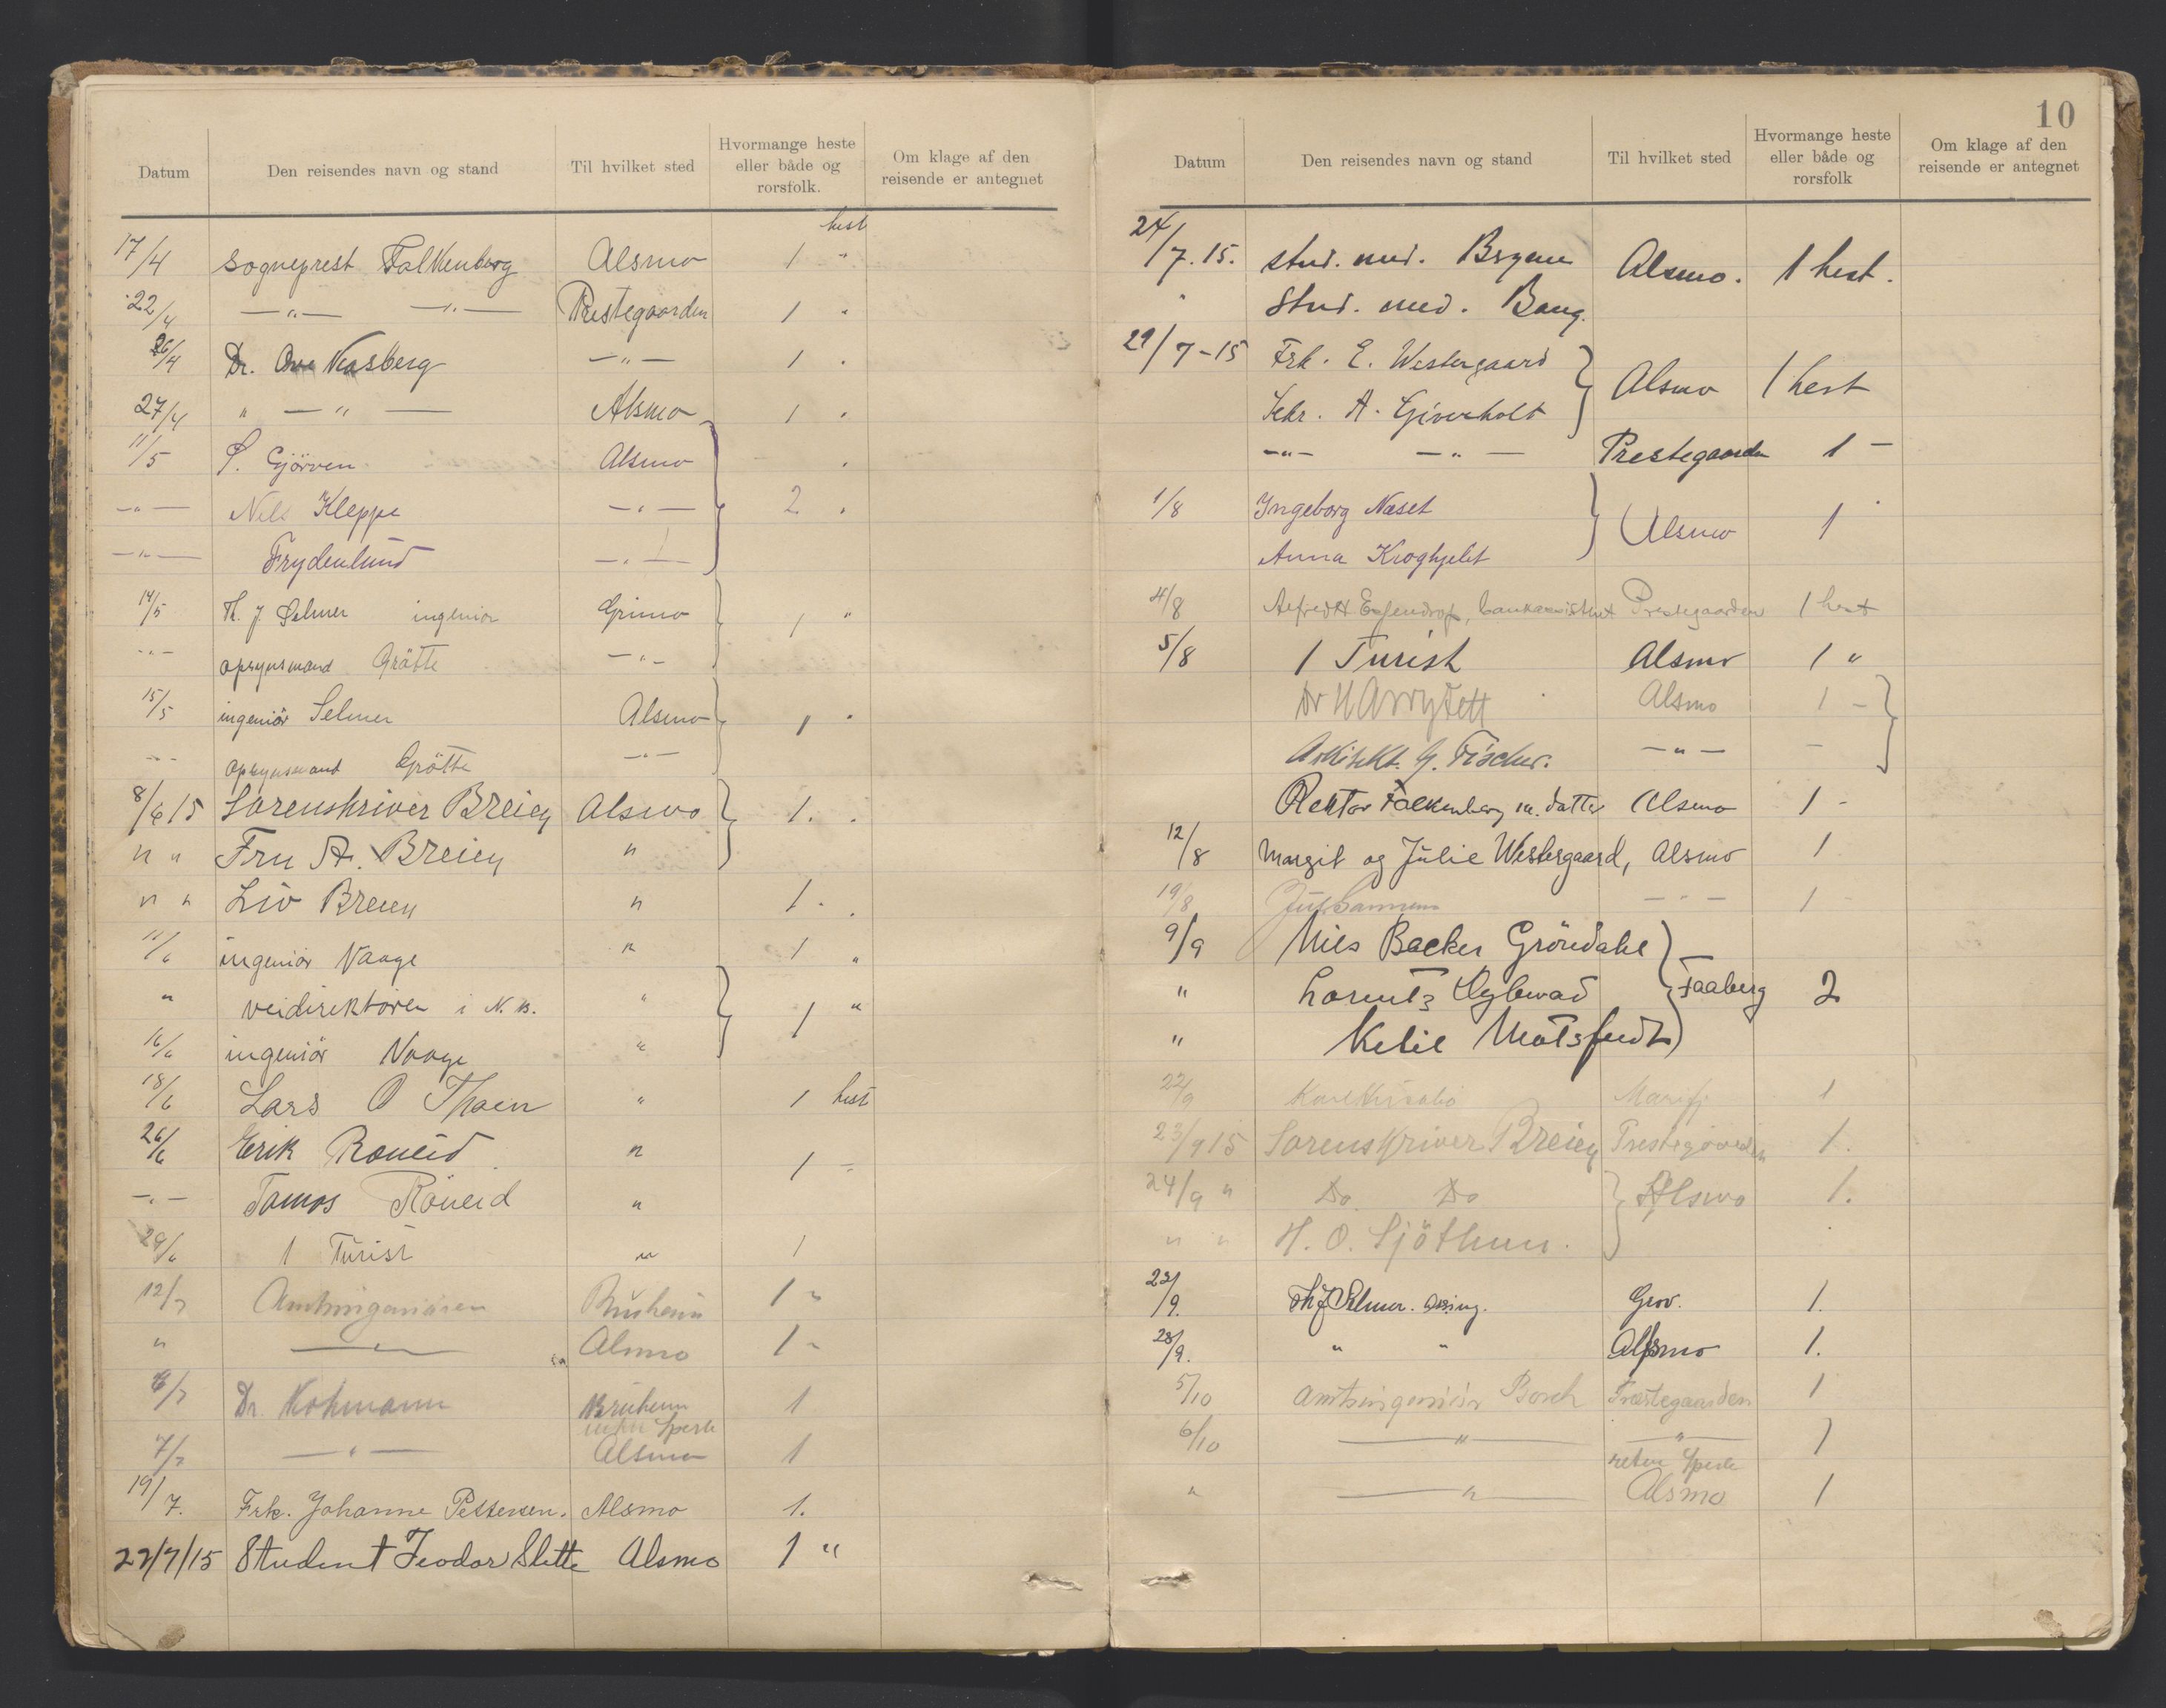 Datum Den reisendes navn og stand Til hvilket sted Hvormange heste eller både og rorsfolk. Om klage af den reisende er antegnet
hest
17/4 sogneprest Falkenberg Alsmo 1 "
22/4 — " — — " — Prestegaarden 1 "
26/4 Dr. — " — 1 "
27/4 " — " — Alsmo 1 "
11/5 P. Gjörven Alsmo
— " — Nils Kleppe — " — 2 "
— " — Frydenlund — " —
14/5 Th. J. Selmer ingeniør Grimo 1 "
— " — opsynsmand Gråtte — " —
15/5 ingeniör Selmer Alsmo 1 "
— " — opsynsmand Gråtte — " —
8/6 15 Sorenskriver Breien Alsmo 1.
" " Fru A. Breien "
" " Liv Breien " 1.
11/6 ingeniör Vaage " 1 "
" veidirektören i N. B. " 1 "
16/6 ingeniör Vaage "
18/6 Lars O Thaen " 1 hest
26/6 Erik Röneid " 1 -
— " — Tomas Röneid "
29/6 1 Turist " 1
12/7 Amtsingeniören Bruheim 1 "
" — " — Alsmo 1 "
6/7 Dr. Kohmann Bruheim 1
7/7 — " — Alsmo 1
19/7. Frk. Johanne Pettersen. Alsmo 1.
22/7/15 Student Teodor Slette Alsmo 1 "
10
Datum Den reisendes navn og stand Til hvilket sted Hvormange heste eller både og rorsfolk Om klage af den reisende er antegnet
24/7.15. stud. med. Brynn Alsmo. 1 hest.
" Stud. med. Bang.
29/7-15 Frk. E. Westergaard
Sekr. A. Giverholt Alsmo 1 hest
— " — — " — Prestegaarden 1 -
1/8 Ingeborg Næset
Anna Alsmo 1
4/8 Alfred Prestegaarden 1 hest
5/8 1 Turist Alsmo 1 "
Dr Alsmo 1 -
Arkitekt. G. Fischer. — " — -
Rektor Falkenberg m. datter Alsmo 1 -
12/8 Margit og Julie Westergaard, Alsmo 1
19/8 — " — 1 -
9/9 Nils Backer Gröndahl
" Lorentz Faaberg 2
" Ketil Motzfeldt
22/9 Marifj 1
23/9 15 Sorenskriver Breien Prestegaarden 1.
24/9 " Do Do Alsmo 1.
" " H. O. Sjöthun.
23/9. Th J Selmer. ass.ing. Grov. 1.
28/9. " " Alsmo 1.
5/10 Amtsingeniör Borch Præstegaarden 1
6/10 — " — — " — 1
retur
" — " — Alsmo 1